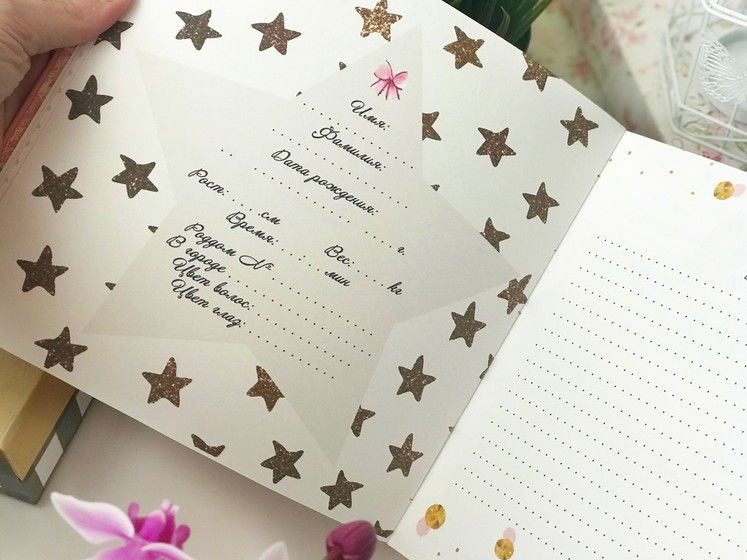 Имя:
Фамилия:
Дата рождения:
г.
Рост: см Вес: kг
Время: : мин
Роддом №
В городе
Цвет волос:
Цвет глаз: